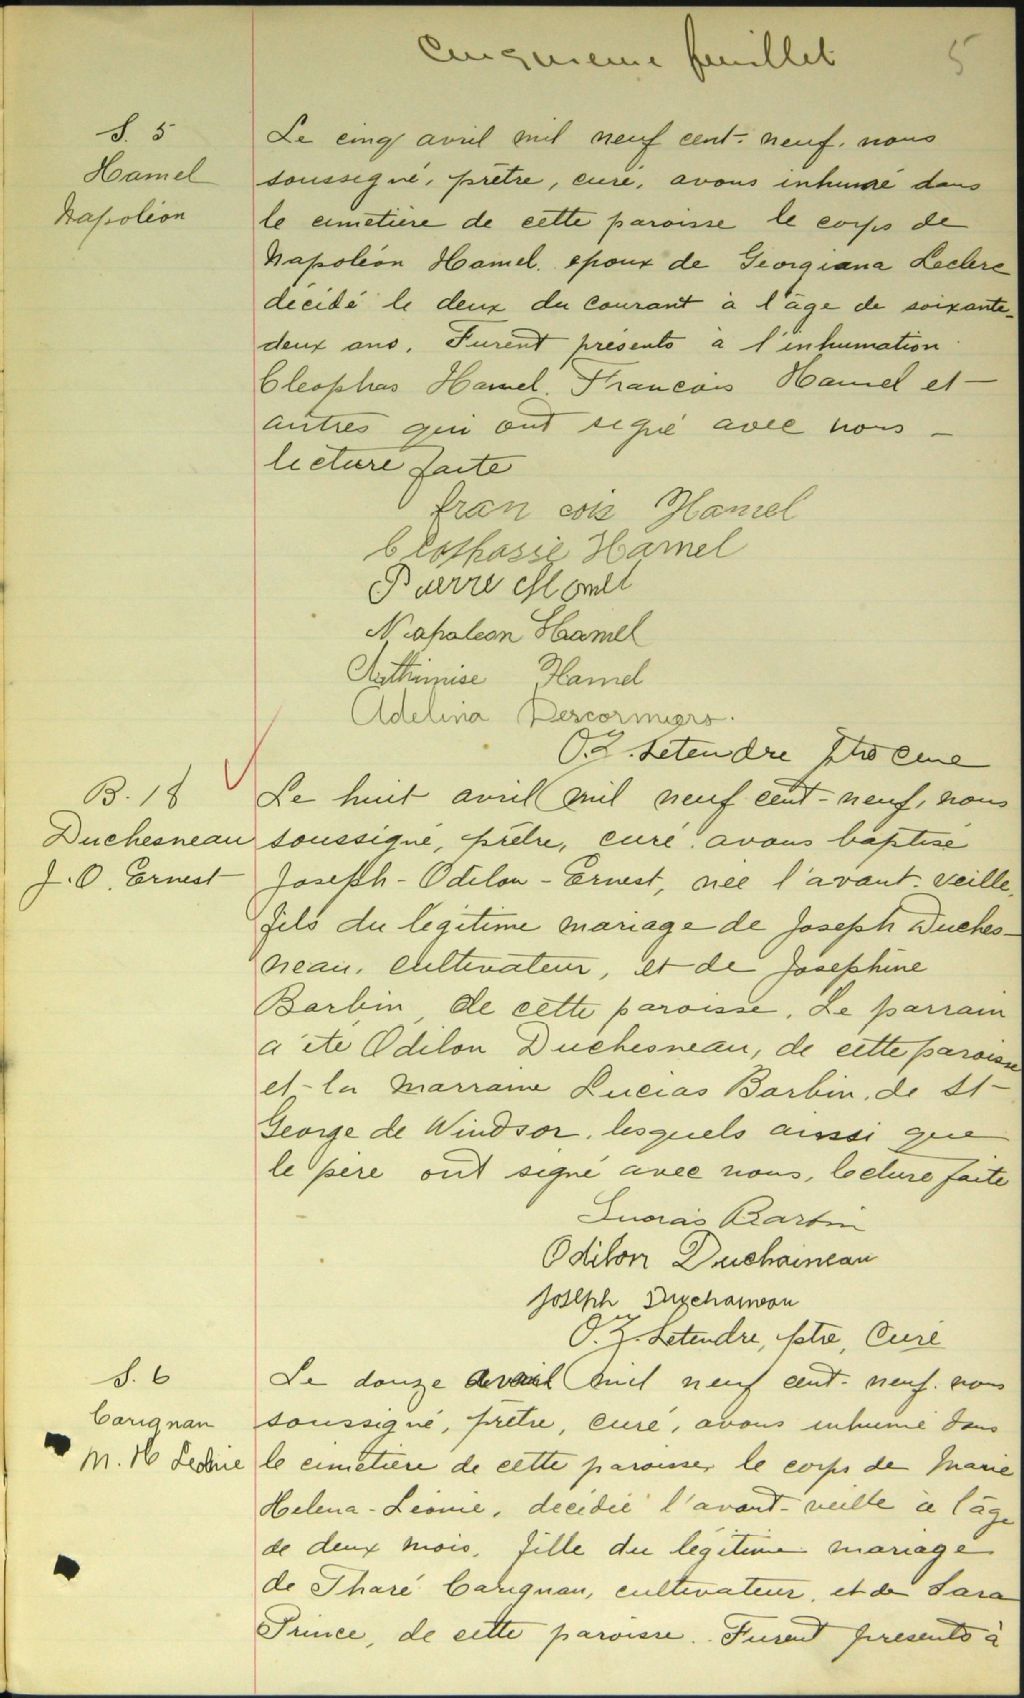 Cinquième feuillet 5
S. 5
Hamel
Napoléon
Le cinq avril mil neuf cent-neuf, nous
soussigné, prêtre, curé, avons inhumé dans
le cimetière de cette paroisse le corps de
Napoléon Hamel. époux de Georgiana Leclerc
décédé le deux du courant à l'âge de soixante-
deux ans. Furent présents à l'inhumation
Cleophas Hamel. Francois Hamel et
autres qui ont signé avec nous -
lecture faite
fran cois Hamel
Hamel
Pierre Hamel
Napoleon Hamel
Hamel
Adelina Descormiers.
O.Z. Letendre ptre cure
B. 18
Duchesneau
J. O. Ernest
Le huit avril mil neuf cent-neuf, nous
soussigné, prêtre, curé avons baptisé
Joseph-Odilon-Ernest, née l'avant-veille,
fils du légitime mariage de Joseph Duches-
neau, cultivateur, et de Josephine
Barbin, de cette paroisse. Le parrain
a été Odilon Duchesneau, de cette paroisse
et la marraine Lucias Barbin, de St-
George de Windsor, lesquels ainsi que
le père ont signé avec nous, lecture faite
Barbin
Odilon Duchaineau
Joseph Duchaineau
O.Z. Letendre, ptre, Curé
S. 6
Carignan
M. H Leonie
Le douze avril mil neuf cent-neuf. nous
soussigné, prêtre, curé, avons inhumé dans
le cimetière de cette paroisse, le corps de Marie
Helena-Léonie, décédée l'avant-veille à l'âge
de deux mois, fille du légitime mariage
de Tharé Carignan, cultivateur, et de Sara
Prince, de cette paroisse. Furent présents à